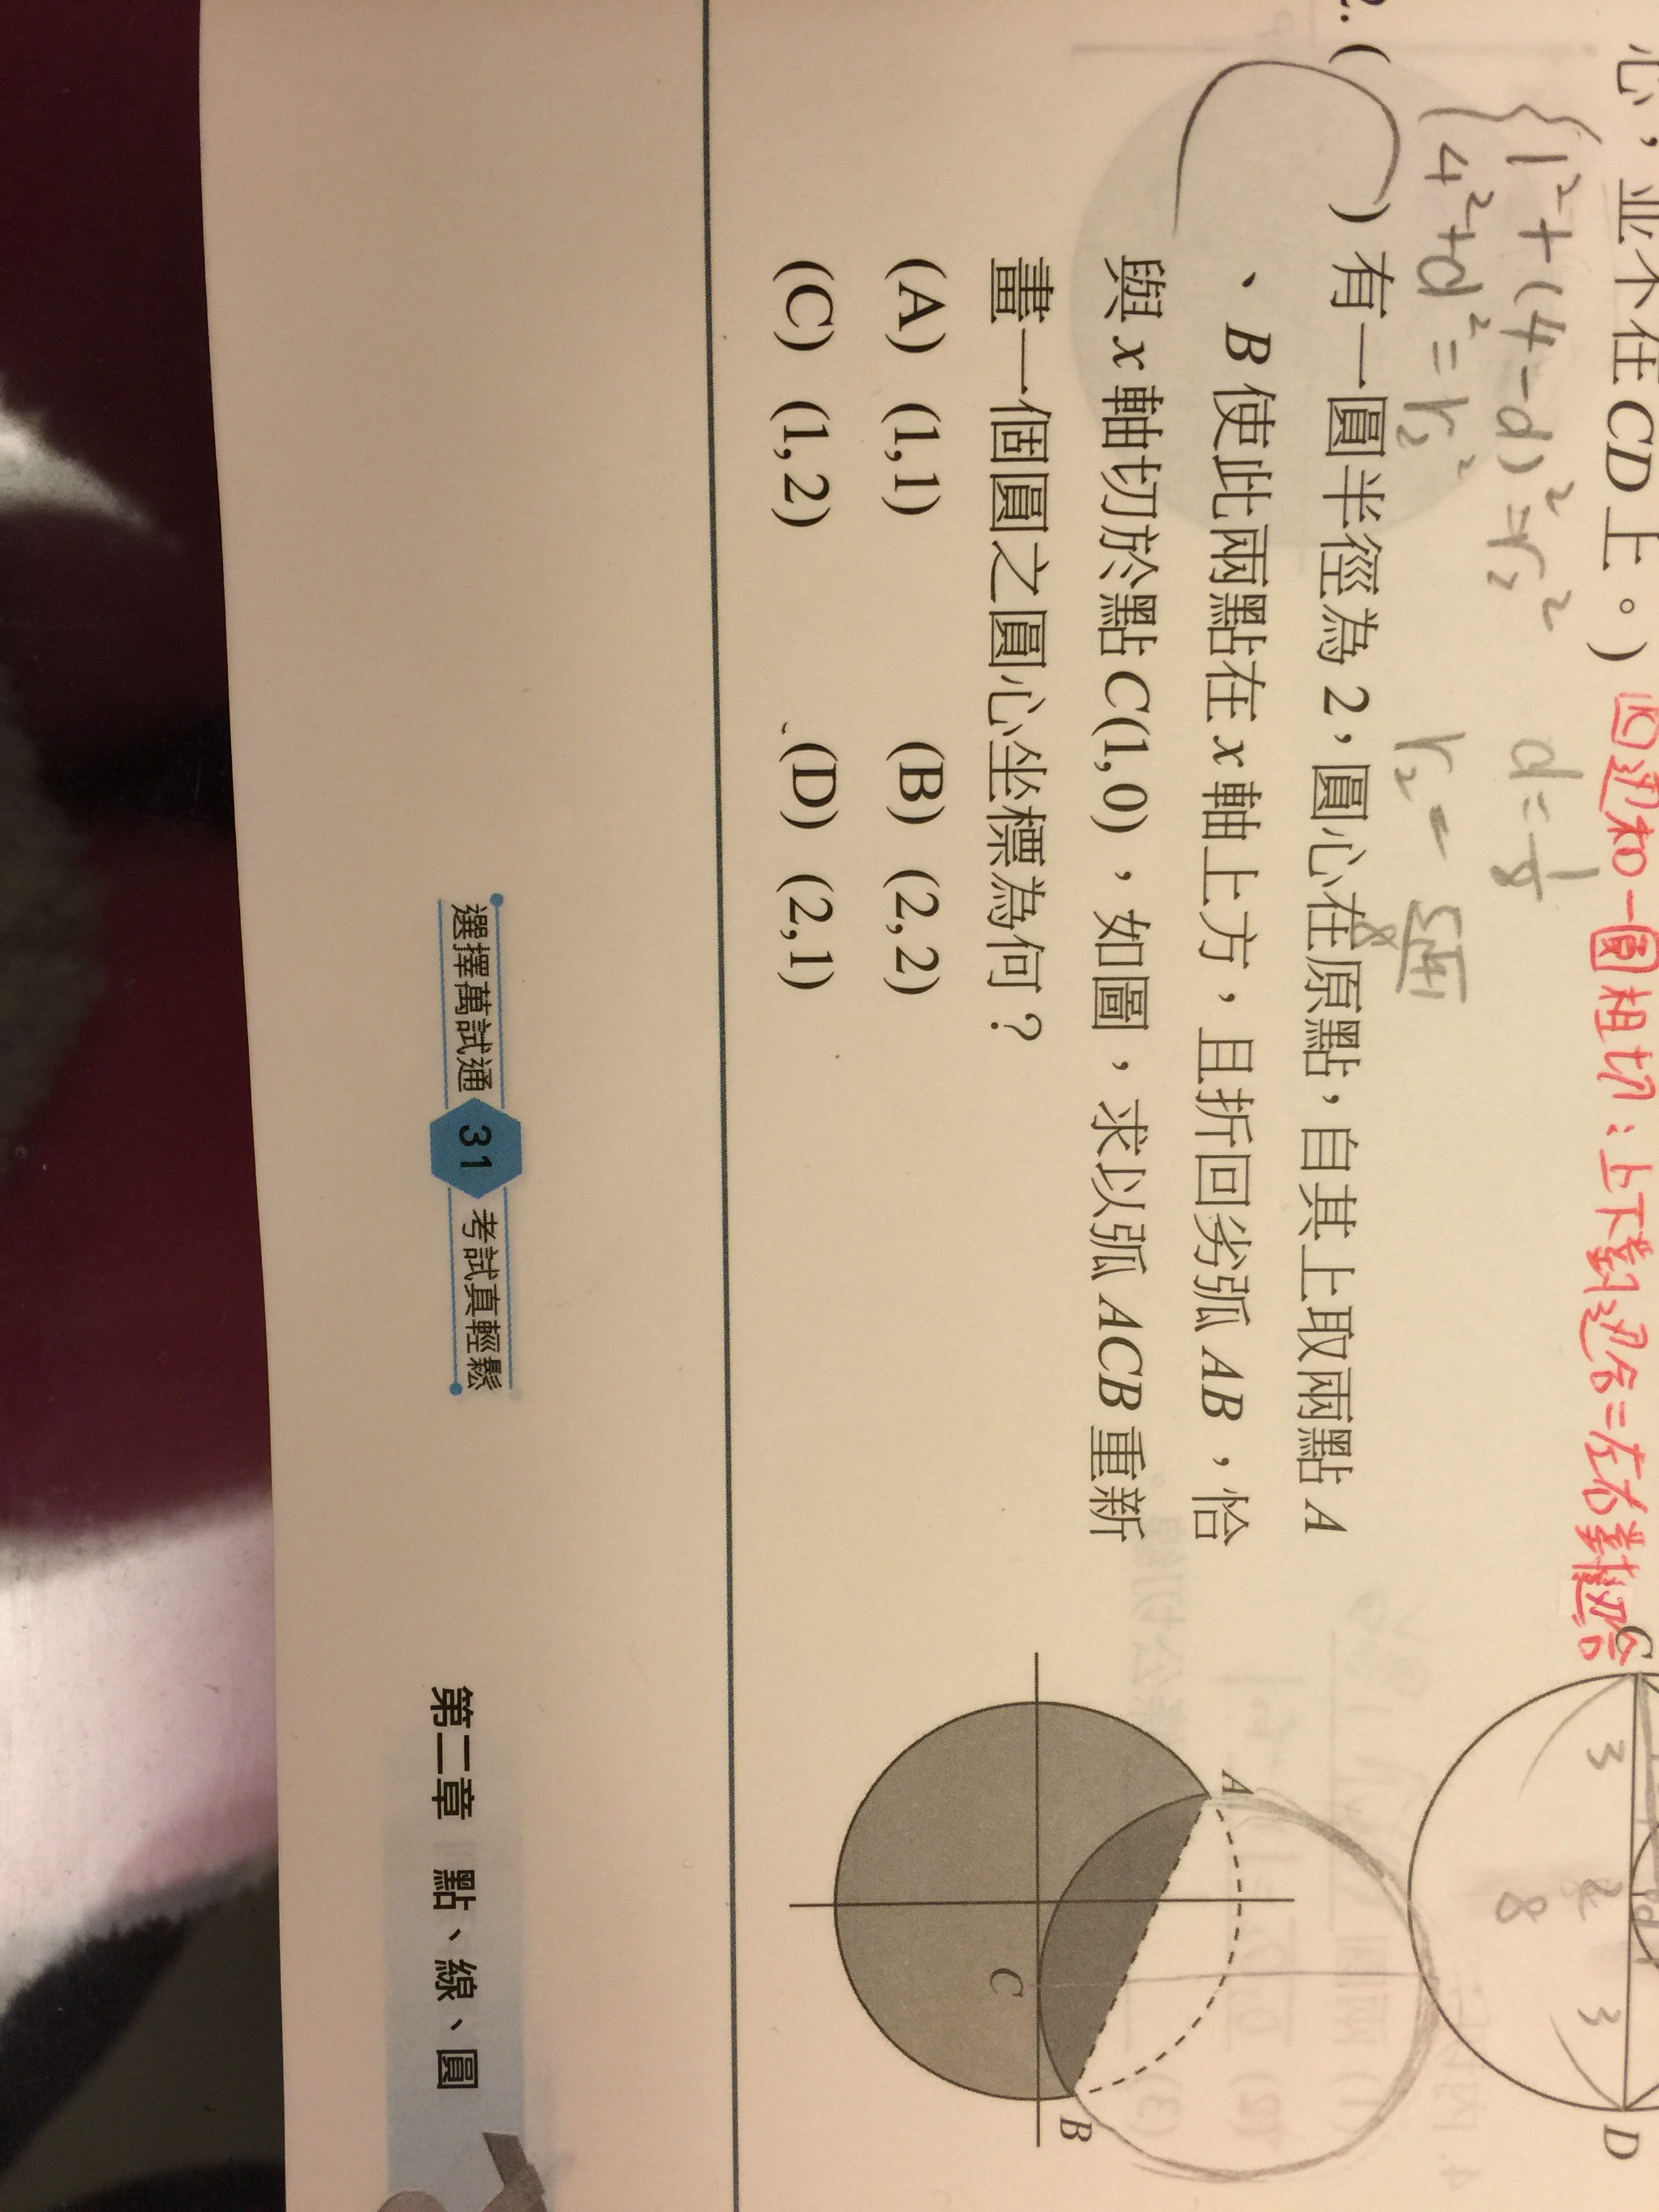 心，並不在CD上。) 四邊和一圓相切：上下對邊合=左右對邊合
1²+(4-d)²=r₂² d=1/8
4²+d²=r₂²
2. ( ) 有一圓半徑為 2，圓心在原點，自其上取兩點 A
、B 使此兩點在 x 軸上方，且折回劣弧 AB，恰
與 x 軸切於點 C(1,0)，如圖，求以弧 ACB 重新
畫一個圓之圓心坐標為何？
(A) (1,1) (B) (2,2)
(C) (1,2) (D) (2,1)
A
C
B
D
3 8 3
選擇萬試通 31 考試真輕鬆
第二章 點、線、圓